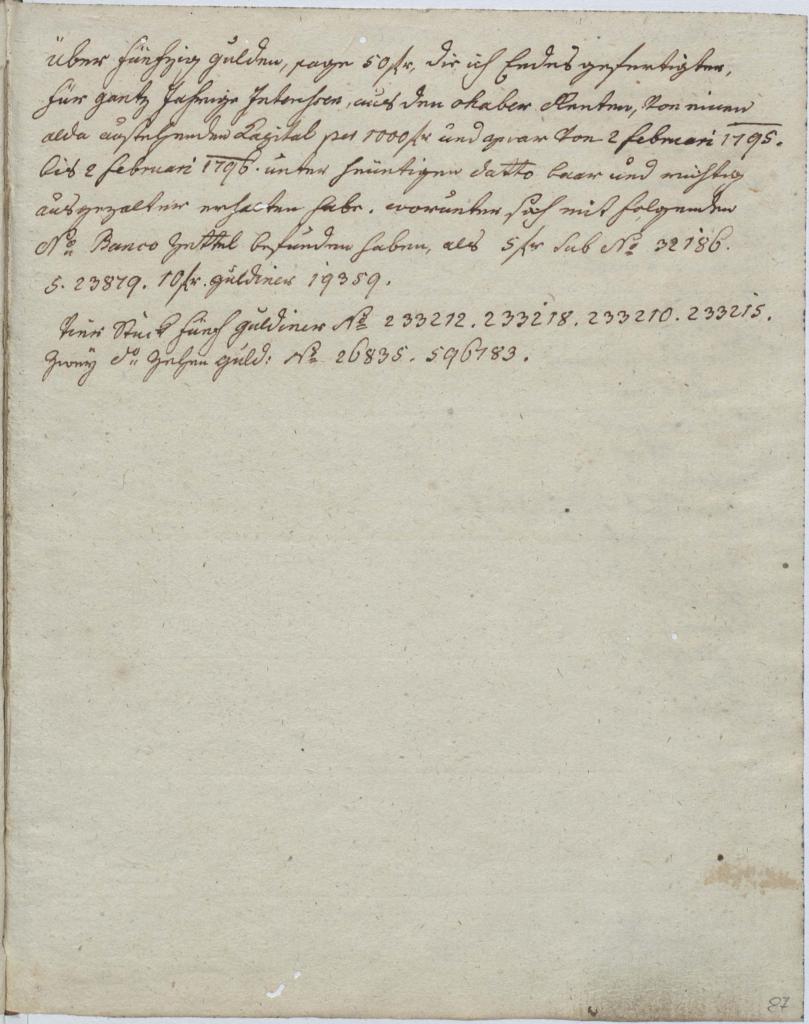 über fünfzig gulden, sage 50 fr, die ich Endesgefertigter,
für gantz Jahrige Interessen, aus den Renten, von einem
alda anstehenden Kapital per 1000 fr und zwar von 2 februari 1795.
bis 2 februari 1796. unter heüntigen datto baar und richtig
ausgezalter erhalten habe. worunter sich mit folgenden
No Banco Zettel befunden haben, als 5 fr Sub No 32186.
5. 23879. 10 fr. guldiner 19359.
Vier Stück fünf guldiner No 233212. 233218. 233210. 233215.
Zwey do Zehen guld: No 26835. 596783.
87